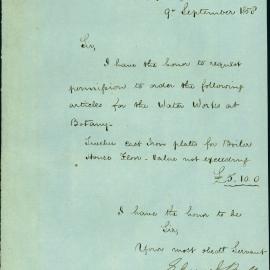 9th September 1858
Sir,
I have the honor to request
permission to order the following
articles for the Water Works at
Botany-
Twelve cast Iron plates for Boiler
House Floor - Value not exceeding
£5.10.0
I have the honor to be
Sir,
Your most obedt Servant